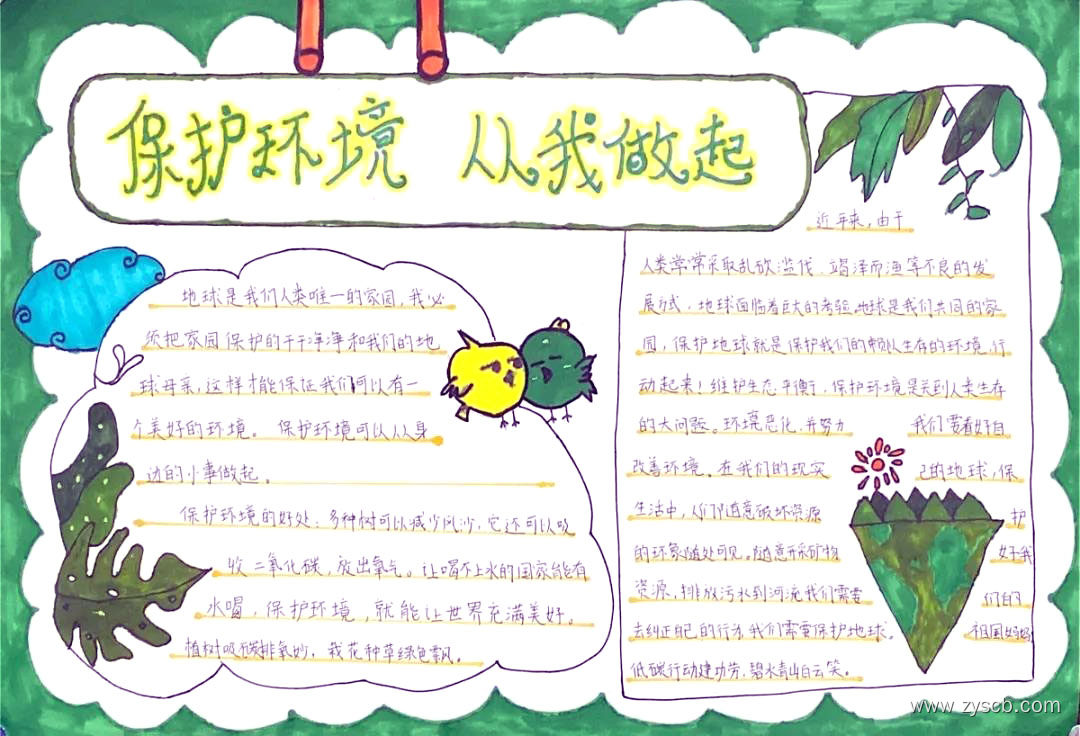 保护环境 从我做起
地球是我们人类唯一的家园,我必
须把家园保护的干干净净和我们的地
球母亲,这样才能保证我们可以有一
个美好的环境。保护环境可以从身
边的小事做起。
保护环境的好处:多种树可以减少风沙,它还可以吸
收二氧化碳,放出氧气。让喝不上水的国家能有
水喝,保护环境,就能让世界充满美好。
植树吸碳排氧妙,栽花种草绿色飘。
近年来,由于
人类常常采取乱砍滥伐、竭泽而渔等不良的发
展方式,地球面临着巨大的考验。地球是我们共同的家
园,保护地球就是保护我们的赖以生存的环境,行
动起来!维护生态平衡,保护环境是关到人类生存
的大问题。环境恶化,并努力
改善环境。在我们的现实
生活中,人们随意破坏资源
的环象随处可见。随意开采矿物
资源,排放污水到河流我们需要
去纠正自己的行为我们需要保护地球。
低碳行动建功劳,碧水青山白云笑。
我们要看好自
己的地球,保
护
好我
们的
祖国妈妈
www.zyscb.com